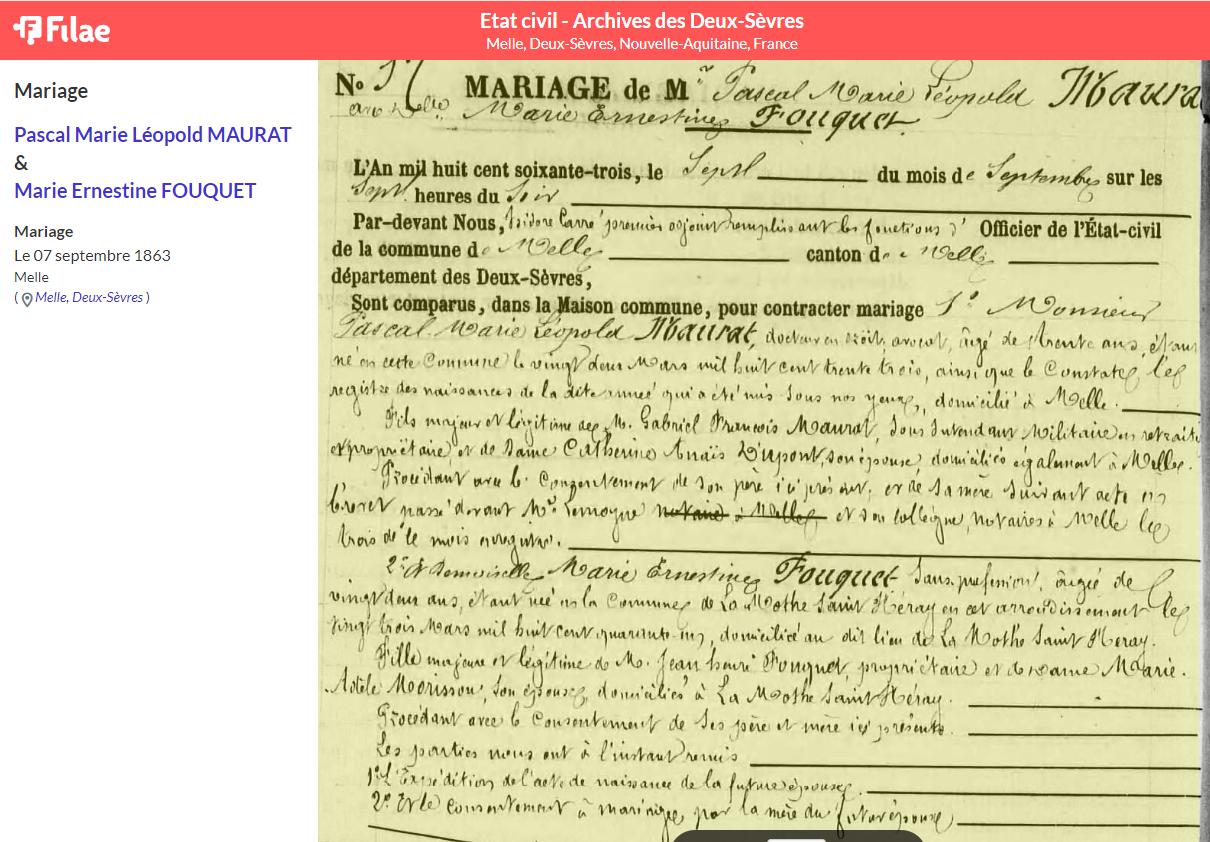 Filae
Etat civil - Archives des Deux-Sèvres
Melle, Deux-Sèvres, Nouvelle-Aquitaine, France
Mariage
Pascal Marie Léopold MAURAT
&
Marie Ernestine FOUQUET
Mariage
Le 07 septembre 1863
Melle
( Melle, Deux-Sèvres )
No MARIAGE de Mr Pascal Marie Léopold Maura
avec Delle Marie Ernestine Fouquet.
L'An mil huit cent soixante-trois, le Sept du mois de Septembre sur les
Sept heures du Soir
Par-devant Nous, Isidore Carré premier adjoint remplissant les fonctions d' Officier de l'État-civil
de la commune de Melle canton de Melle
département des Deux-Sèvres,
Sont comparus, dans la Maison commune, pour contracter mariage 1º Monsieur
Pascal Marie Léopold Maurat, docteur en droit, avocat, âgé de trente ans, étant
né en cette Commune le vingt deux Mars mil huit cent trente trois, ainsi que le Constate le
registre des naissances de la dite année qui a été mis sous nos yeux, domicilié à Melle.
Fils majeur et légitime de M. Gabriel François Maurat, Sous Intendant Militaire en retraite
et propriétaire, et de Dame Catherine Anaïs Dupont, son épouse, domiciliés également à Melle.
Procédant avec le Consentement de son père ici présent, et de sa mère suivant acte en
brevet passé devant Me Lemoyne notaire à Melle et son collègue, notaires à Melle le
trois de ce mois enregistré.
2º Et Demoiselle Marie Ernestine Fouquet sans profession, âgée de
vingt deux ans, étant née en la Commune de La Mothe Saint Héray en cet arrondissement le
vingt trois Mars mil huit cent quarante-un, domiciliée au dit lieu de La Mothe Saint Heray.
Fille majeure et légitime de M. Jean henri Fouquet, propriétaire et de Dame Marie.
Adèle Morisson, son épouse, domiciliés à La Mothe Saint Héray.
Procédant avec le Consentement de ses père et mère ici présents.
Les parties nous ont à l'instant remis
1º L'Expédition de l'acte de naissance de la future épouse.
2º Et le consentement à mariage par la mère du futur époux